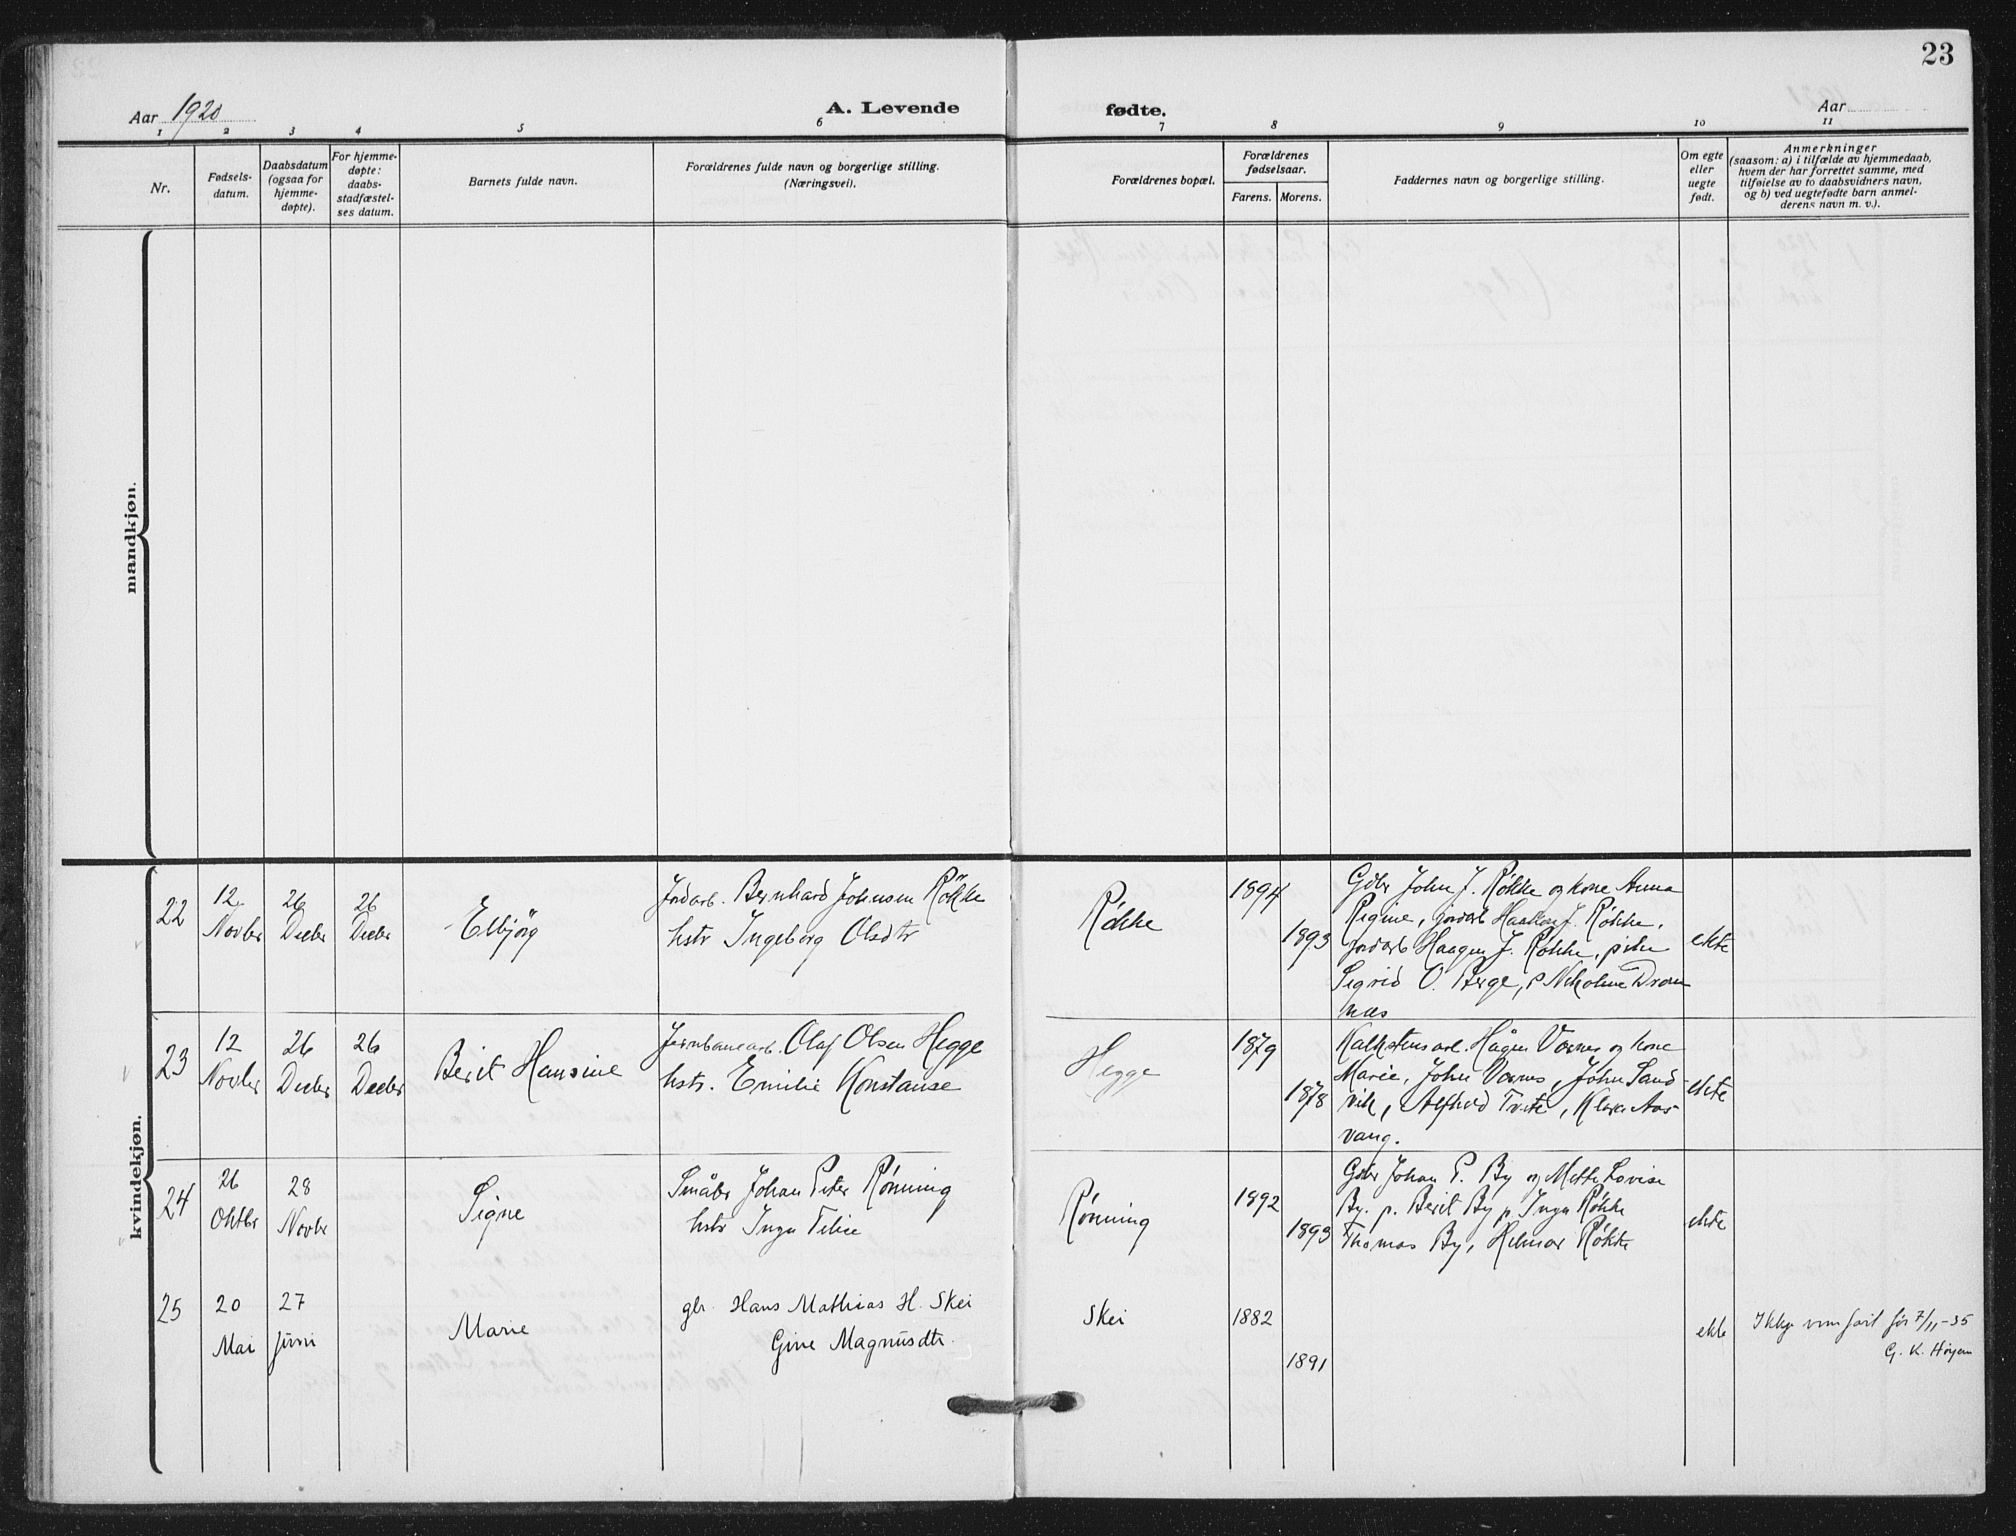 23
Aar 1920
A. Levende
fødte.
Aar
1 2 3 4 5 6 7 8 9 10 11
Nr.
Fødsels-
datum.
Daabsdatum
(ogsaa for
hjemme-
døpte).
For hjemme-
døpte:
daabs-
stadfæstel-
ses datum.
Barnets fulde navn.
Forældrenes fulde navn og borgerlige stilling.
(Næringsvei).
Forældrenes bopæl.
Forældrenes
fødselsaar.
Farens. Morens.
Faddernes navn og borgerlige stilling.
Om egte
eller
uegte
født.
Anmerkninger
(saasom: a) i tilfælde av hjemmedaab,
hvem der har forrettet samme, med
tilføielse av to daabsvidners navn,
og b) ved uegtefødte barn anmel-
derens navn m. v.).
mandkjøn.
kvindekjøn.
22
12
Novbr
26
Decbr
26
Decbr
Elbjörg
Jordarb. Bernhard Johnsen Røkke
hstr Ingeborg Olsdtr
Røkke
1894
1893
Gdbr John J. Røkke og kone Anna
Regine, jordarb Haakon J. Røkke,
jordarb Haagen J. Røkke, pike
Sigrid O. Berge, p Nikoline Dram
næs
ekte
23
12
Novbr
26
Decbr
26
Decbr
Berit Hansine
Jernbanearb. Olaf Olsen Hegge
hstr. Emilie Konstanse
Hegge
1879
1878
Kalkstensarb. Hågen Værnes og kone
Marie, John Værnes, John Sand-
vik, Alfhild Tvete, Klara Aas-
vang.
ekte
24
26
Oktbr
28
Novbr
Signe
Småbr Johan Peter Rønning
hstr Inga Filie
Rønning
1892
1893
Gdbr Johan P. By og Mette Lovise
By. p. Berit By p. Inga Røkke
Thomas By, Helmer Røkke
ekte
25
20
Mai
27
juni
Marie
gbr. Hans Mathias H. Skei
Gine Magnusdtr.
Skei
1882
1891
ekte
Ikkje innfört för 7/11-35
G. K. Höyem